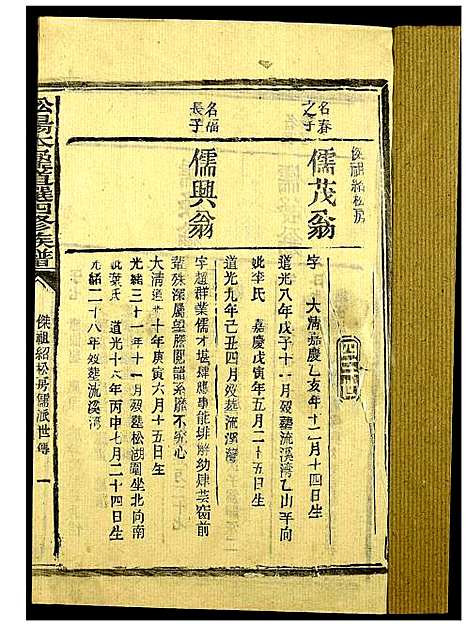 傑祖紹松房
名春之子
儒茂翁
字 大清嘉慶乙亥年十二月十四日生
道光八年戊子十一月歿葬流溪湾乙山羊向
妣李氏 嘉慶戊寅年五月二十五日生
道光九年己丑四月歿葬流溪灣
名福長子
儒興翁
字超群業儒才堪肆應事能排解幼肆芸窗前
輩殊深屬望勝閱譜系靡不究心
大清道光十年庚寅六月十五日生
光緒三十一年十一月歿葬松湖圍坐北向南
妣葉氏 道光十六年丙申七月二十四日生
光緒二十八年歿葬流溪湾
四十四
傑祖紹松房儒派世傳 一